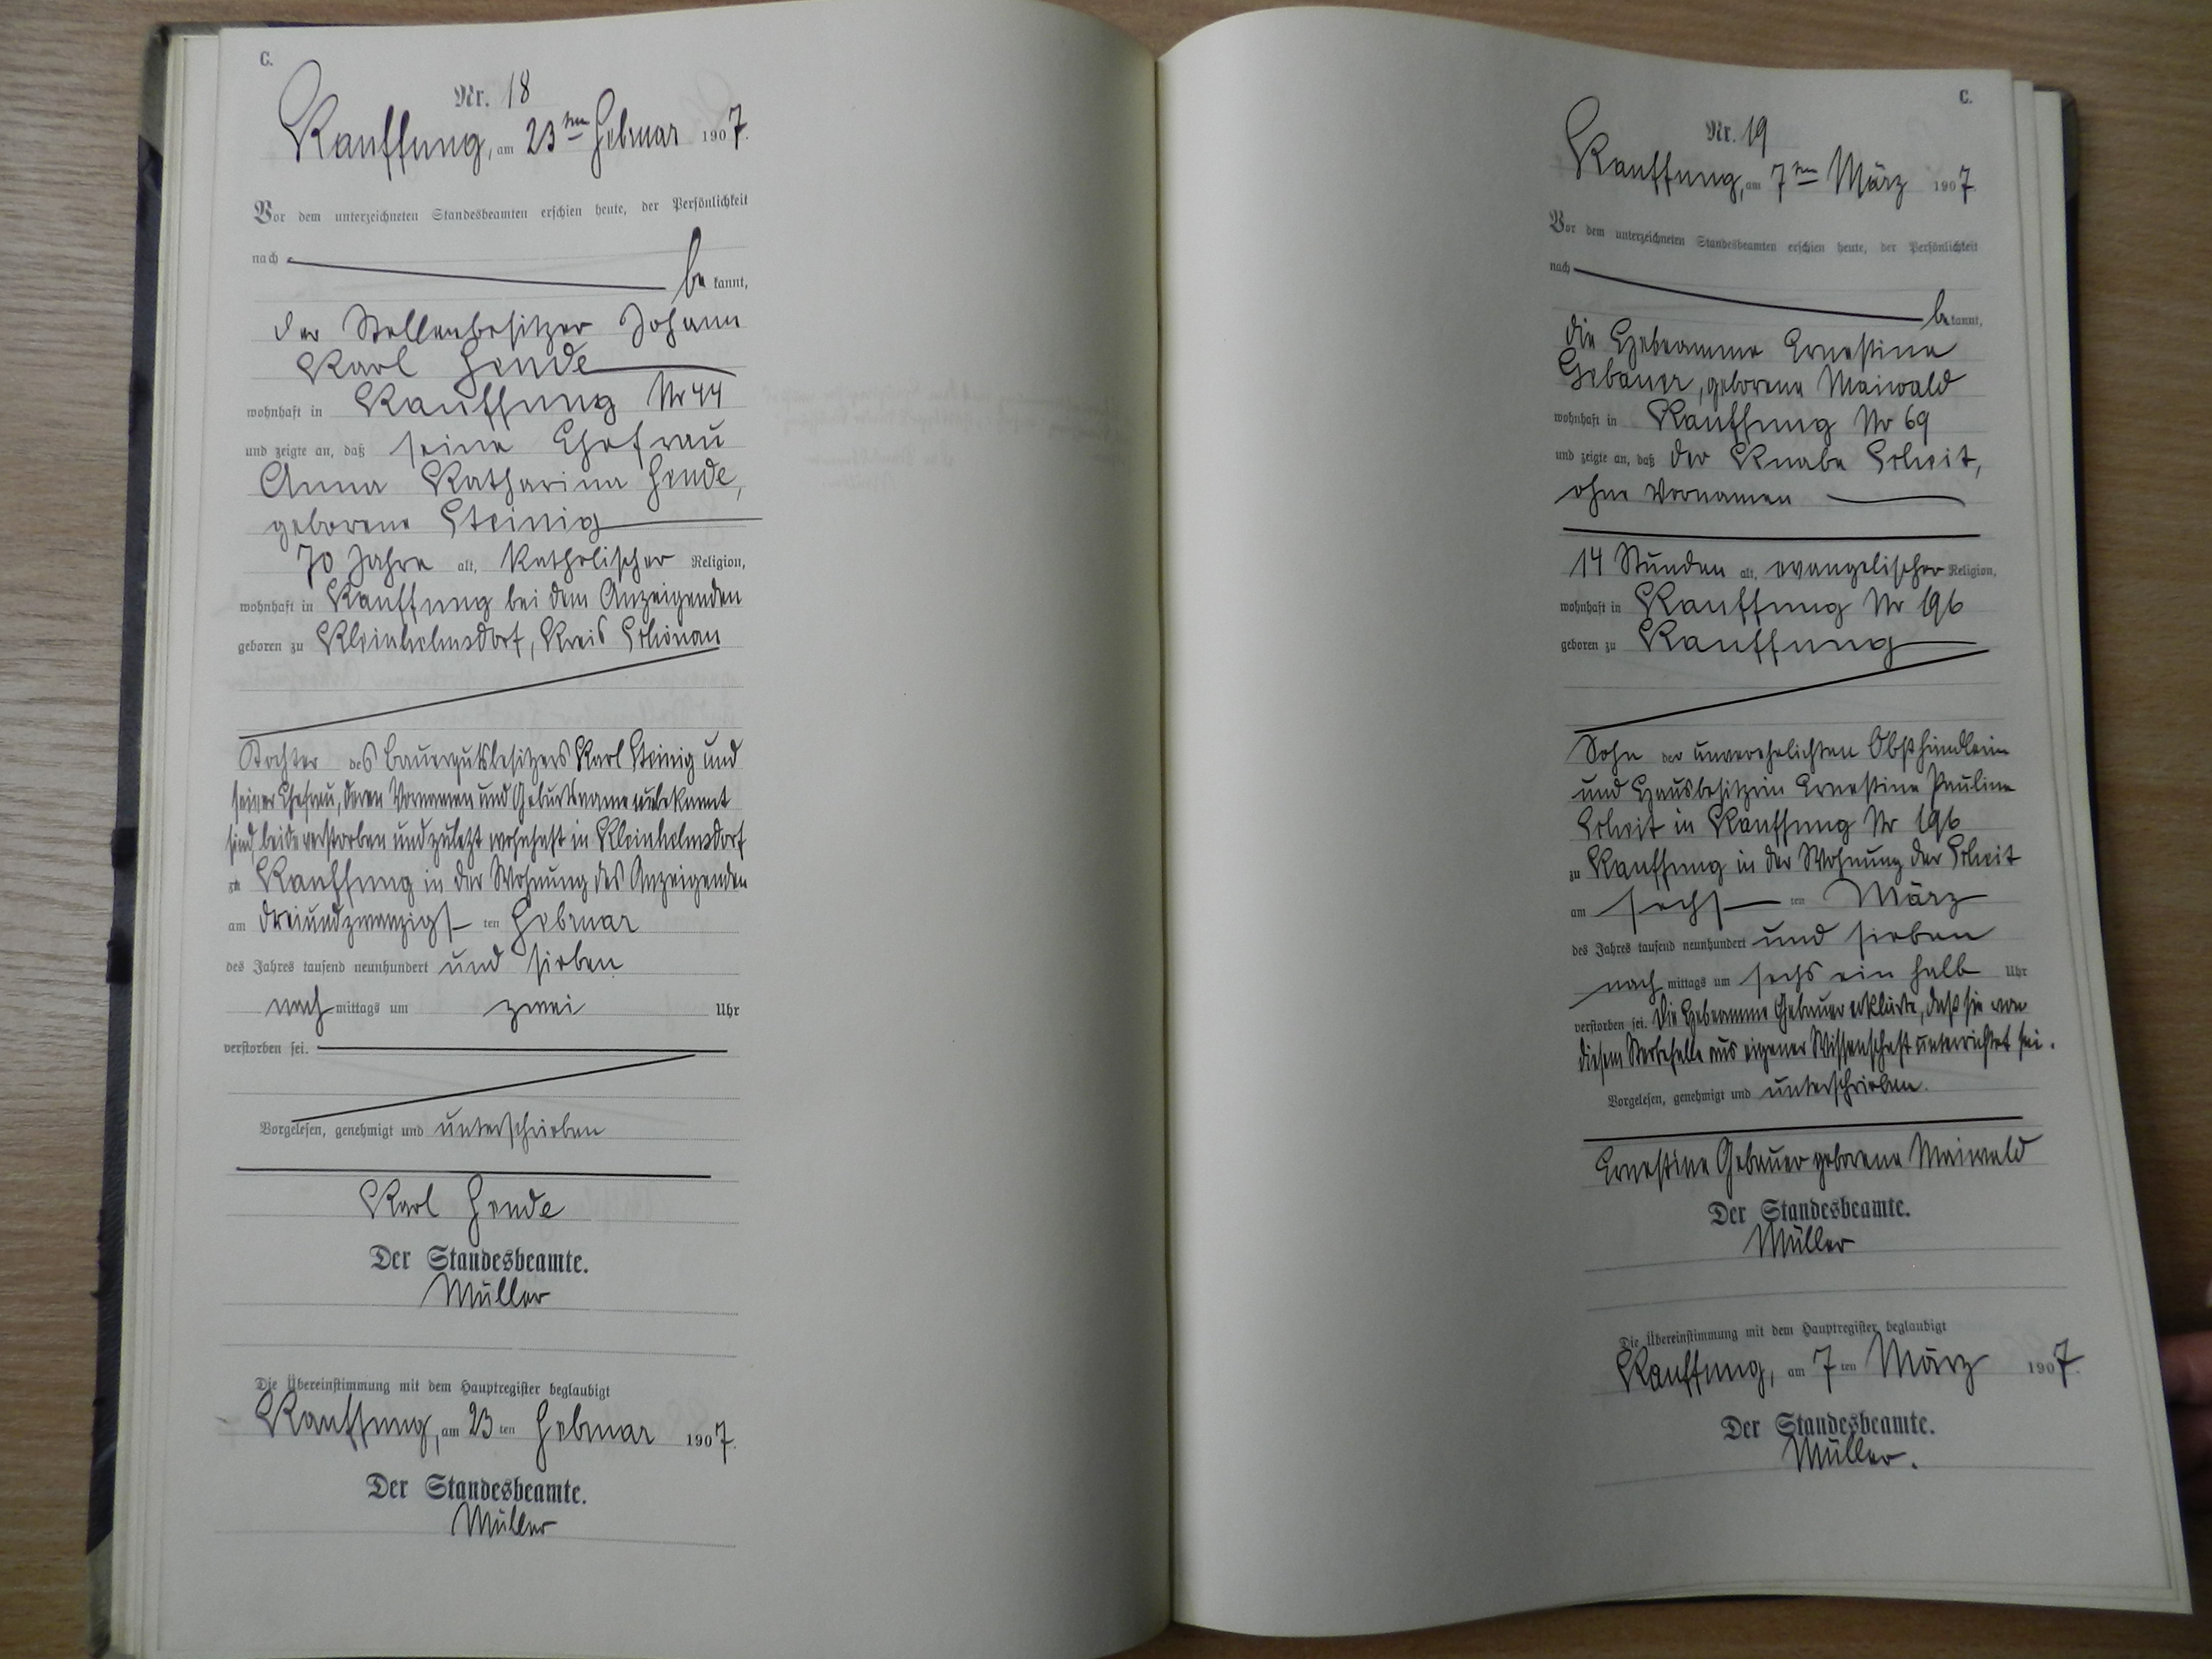 C.
Nr. 18
Kauffung, am 23ten Februar 1907.
Vor dem unterzeichneten Standesbeamten erschien heute, der Persönlichkeit
nach be kannt,
der Stellenbesitzer Johann
Karl Hende
wohnhaft in Kauffung Nr 44
und zeigte an, daß seine Ehefrau
Anna Katharina Hende,
geborene Steinig
70 Jahre alt, katholischer Religion,
wohnhaft in Kauffung bei dem Anzeigenden
geboren zu Kleinhelmsdorf, Kreis Schönau
Tochter des Bauergutsbesitzers Karl Steinig und
seiner Ehefrau, deren Vornamen und Geburtsname unbekannt
sind, beide verstorben und zuletzt wohnhaft in Kleinhelmsdorf
zu Kauffung in der Wohnung des Anzeigenden
am dreiundzwanzigs ten Februar
des Jahres tausend neunhundert und sieben
nach mittags um zwei Uhr
verstorben sei.
Vorgelesen, genehmigt und unterschrieben
Karl Hende
Der Standesbeamte.
Müller
Die Übereinstimmung mit dem Hauptregister beglaubigt
Kauffung, am 23 ten Februar 1907.
Der Standesbeamte.
Müller
C.
Nr. 19
Kauffung, am 7ten März 1907.
Vor dem unterzeichneten Standesbeamten erschien heute, der Persönlichkeit
nach be kannt,
die Hebeamme Ernestine
Gebauer, geborene Maiwald
wohnhaft in Kauffung Nr 69
und zeigte an, daß der Knabe Scheit,
ohne Vornamen
14 Stunden alt, evangelischer Religion,
wohnhaft in Kauffung Nr 196
geboren zu Kauffung
Sohn der unverehelichten Obsthändlerin
und Hausbesitzerin Ernestine Pauline
Scheit in Kauffung Nr 196
zu Kauffung in der Wohnung der Scheit
am sechs ten März
des Jahres tausend neunhundert und sieben
nach mittags um sechs ein halb Uhr
verstorben sei. Die Hebeamme Gebauer erklärte, daß sie von
diesem Sterbefalle aus eigener Wissenschaft unterrichtet sei.
Vorgelesen, genehmigt und unterschrieben.
Ernestine Gebauer geborene Maiwald
Der Standesbeamte.
Müller
Die Übereinstimmung mit dem Hauptregister beglaubigt
Kauffung, am 7 ten März 1907.
Der Standesbeamte.
Müller.